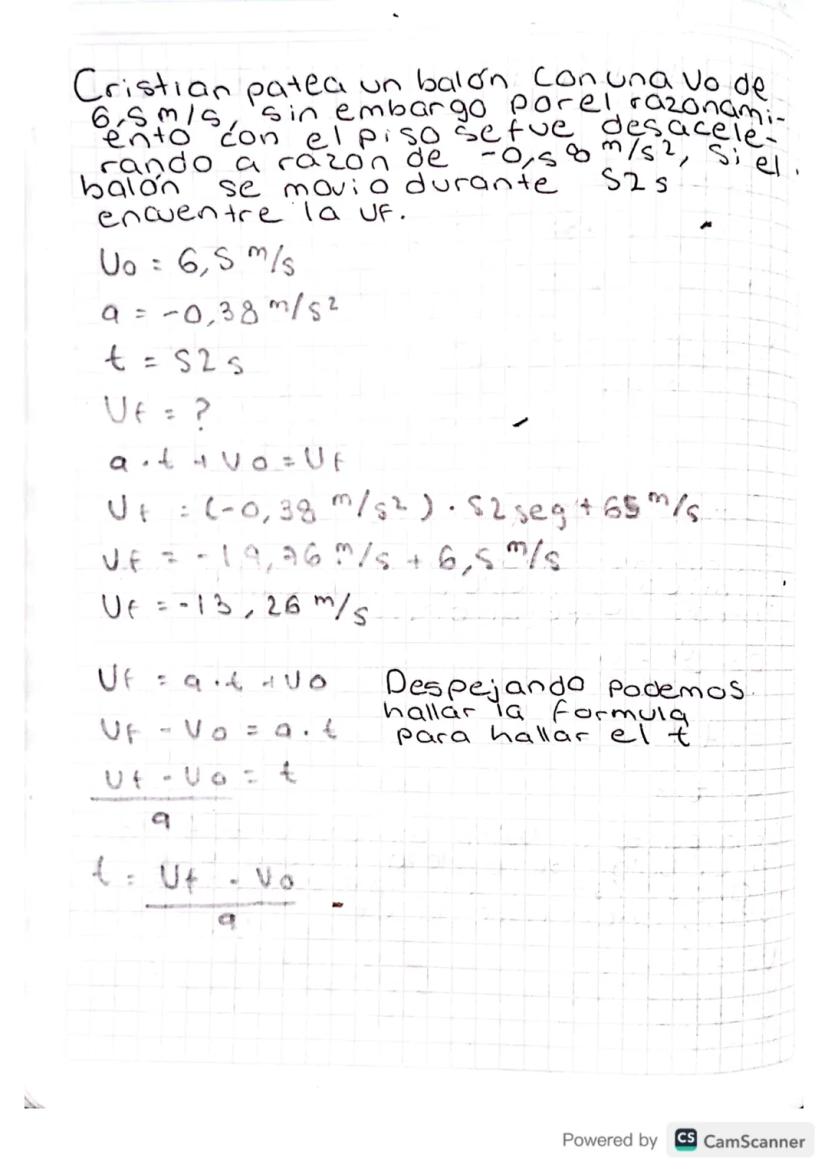 Cristian patea un balón con una Vo de
6,5 m/s, sin embargo por el razonami-
ento con el piso se fue desacele-
rando a razón de -0,58 m/s², si el
balón se movio durante 52 s
encuentre la Vf.
Vo = 6,5 m/s
a = -0,38 m/s²
t = 52 s
Vf = ?
a · t + Vo = Vf
Vf = (-0,38 m/s²) · 52 seg + 65 m/s
Vf = -19,76 m/s + 6,5 m/s
Vf = -13,26 m/s
Vf = a · t + Vo
Vf - Vo = a · t
Vf - Vo = t
a
Despejando podemos
hallar la formula
para hallar el t
t = Vf - Vo
a
Powered by CS CamScanner